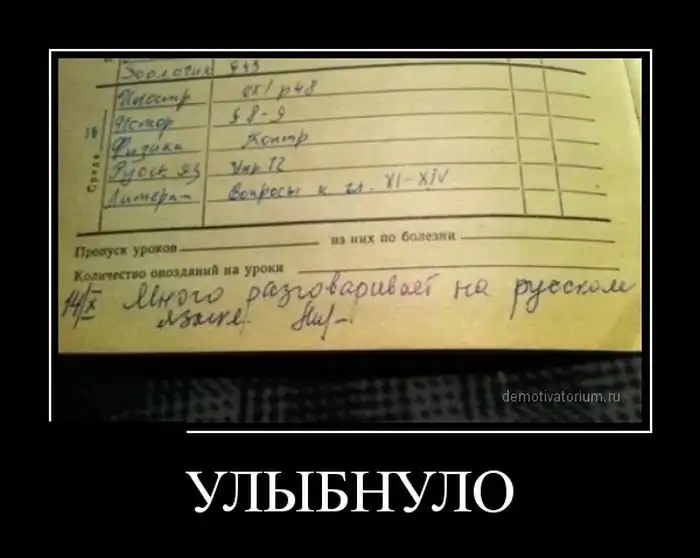 Зоология § 43
Иностр ex1 p48
Истор § 8-9
Физика Контр
Русск яз Упр 12
Литерат Вопросы к гл. VI-XIV
Среда 16
Пропуск уроков из них по болезни
Количество опозданий на уроки
14/X Много разговаривает на русском
языке.
demotivatorium.ru
УЛЫБНУЛО